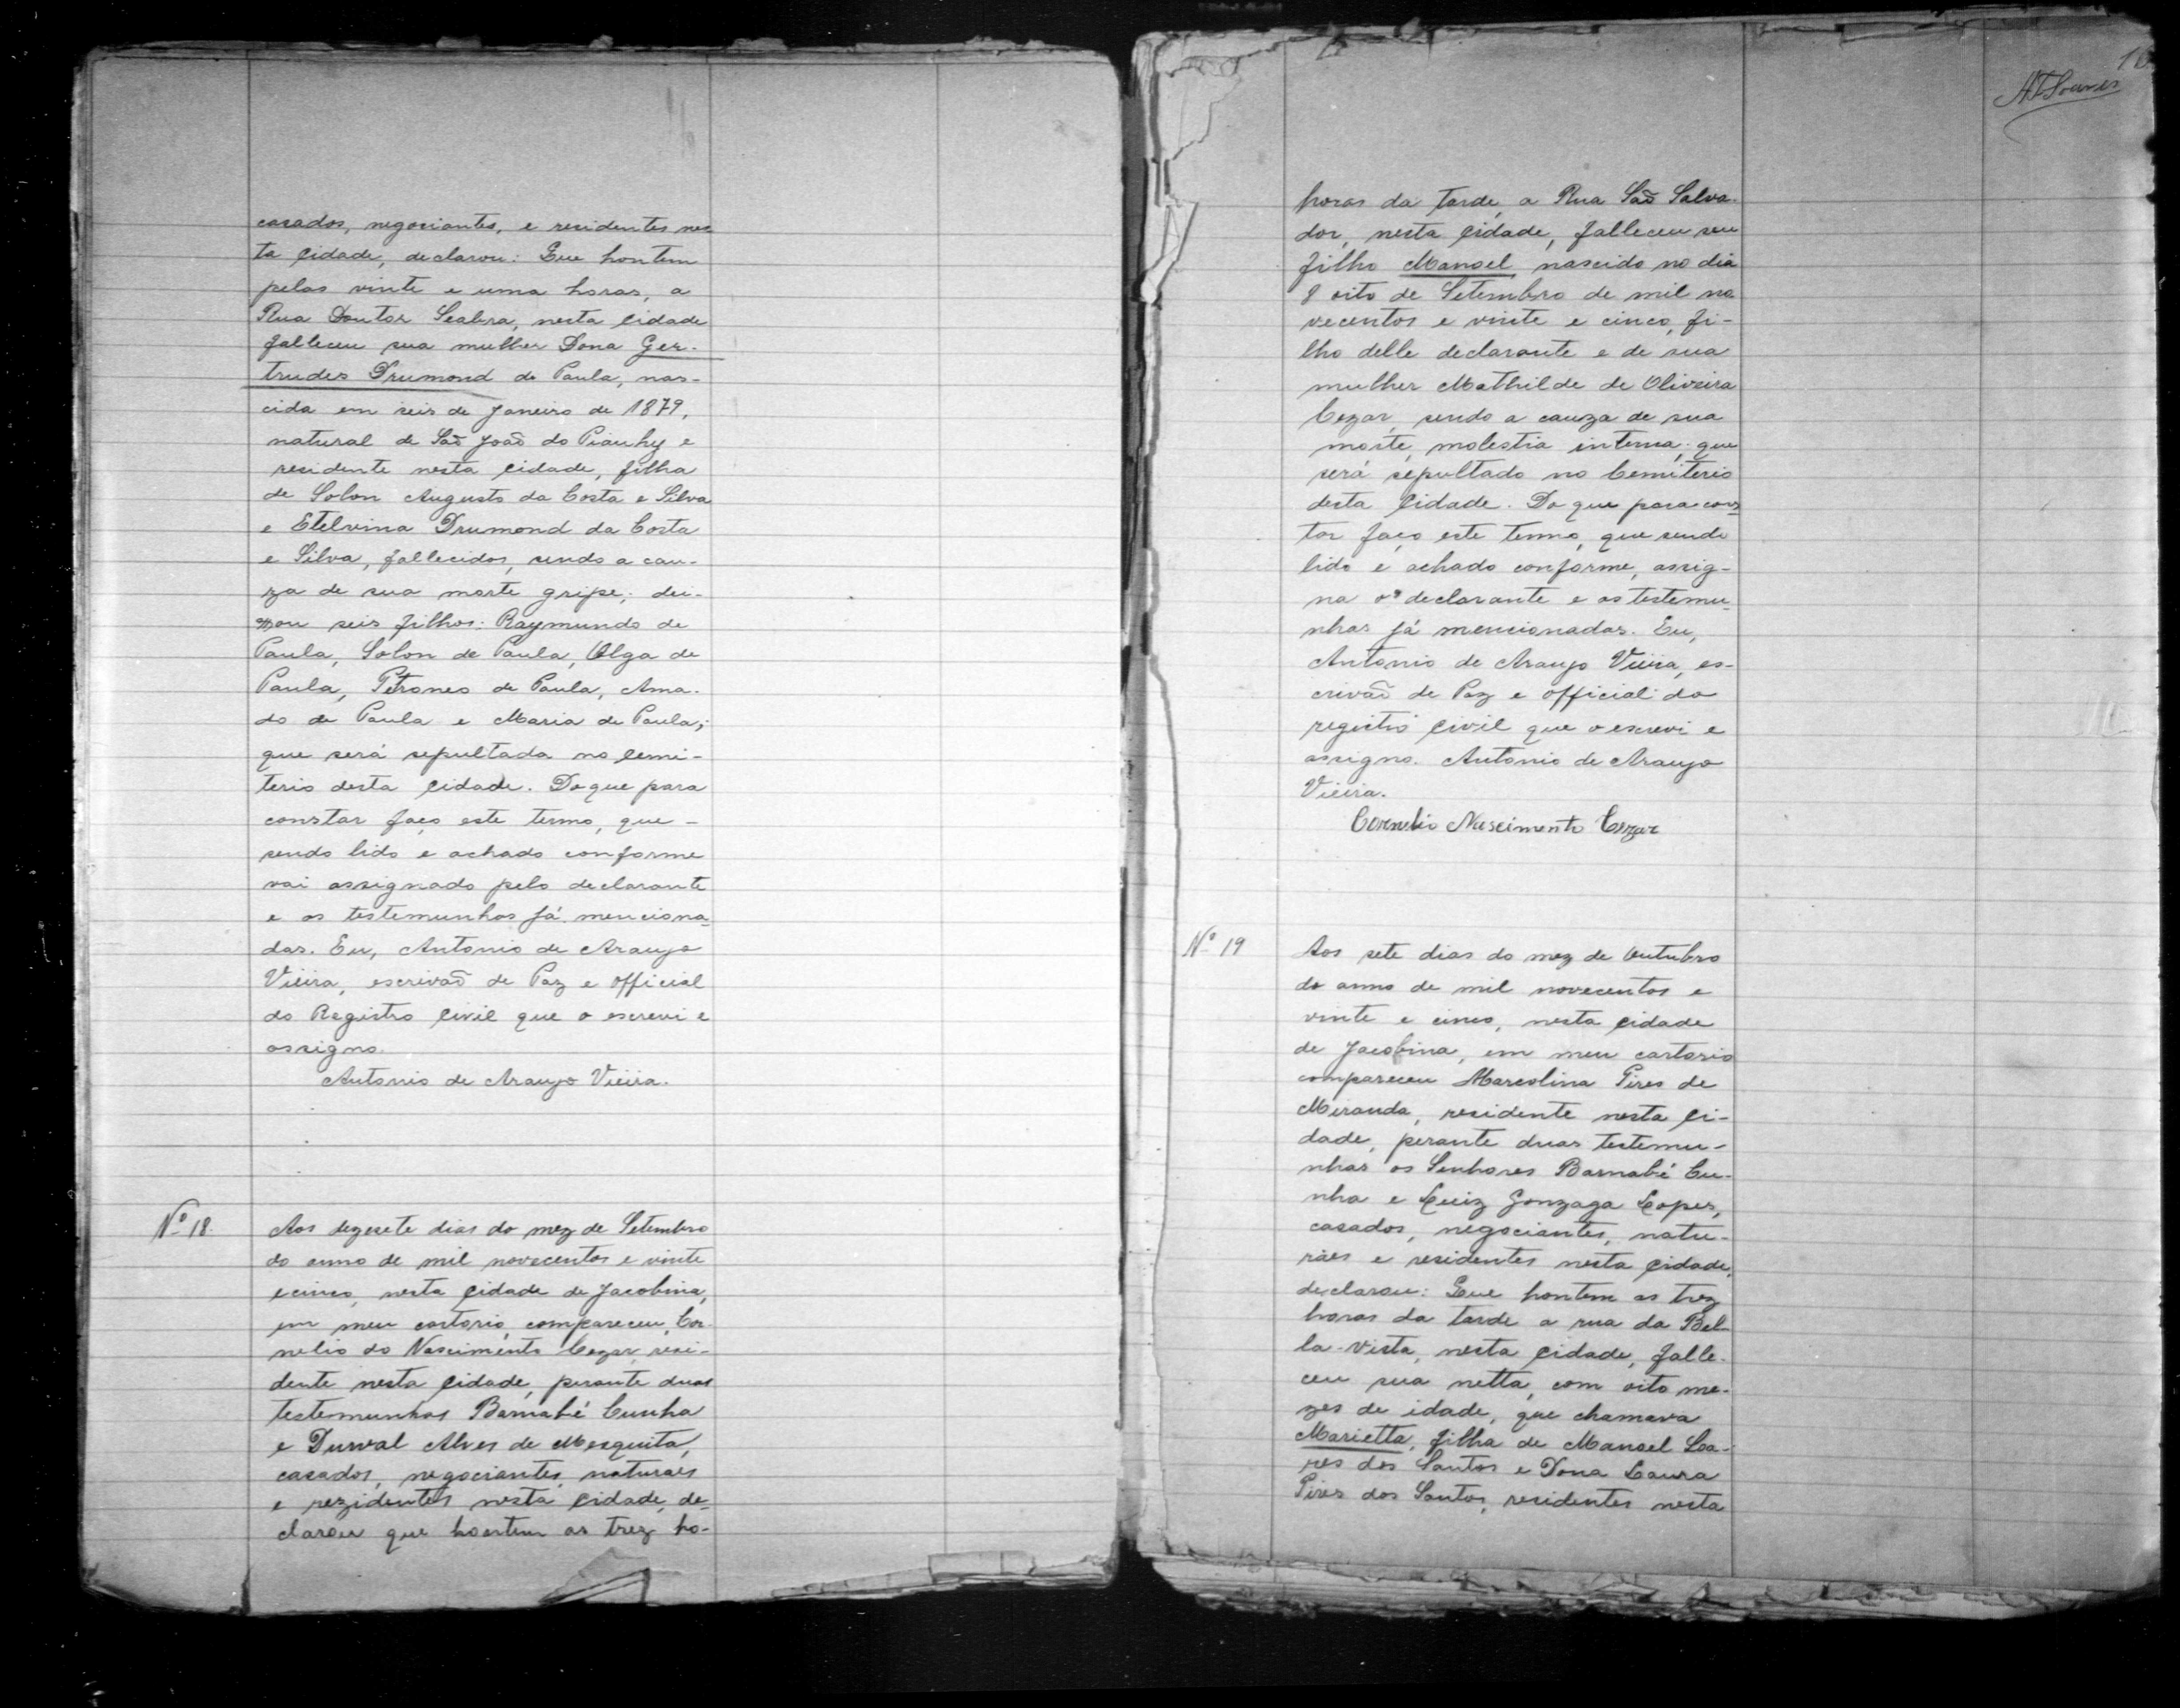 casados, negociantes, e residentes nes
ta Cidade, declarou: Que hontem
pelas vinte e uma horas, a
Rua Doutor Seabra, nesta Cidade
falleceu sua mulher Dona Ger-
trudes Drumond de Paula, nas-
cida em seis de Janeiro de 1879,
natural de Saõ Joaõ do Piauhy e
residente nesta Cidade, filha
de Solon Augusto da Costa e Silva
e Etelvina Drumond da Costa
e Silva, fallecidos, sendo a cau-
za de sua morte gripe; dei-
xou seis filhos: Raymundo de
Paula, Solon de Paula, Olga de
Paula, Petroneo de Paula, Ama-
do de Paula e Maria de Paula;
que será sepultada no Cemi-
terio desta Cidade. Do que para
constar faço este termo, que -
sendo lido e achado conforme
vai assignado pelo declarante
e as testemunhas já menciona
das. Eu, Antonio de Araujo
Vieira, escrivaõ de Paz e Official
do Registro Civil que o escrevi e
assigno.
Antonio de Araujo Vieira.
Nº 18.
Aos dezesete dias do mez de Setembro
do anno de mil novecentos e vinte
e cinco, nesta Cidade de Jacobina,
em meu cartorio, compareceu, Cor-
nelio do Nascimento Cezar, resi-
dente nesta Cidade, perante duas
testemunhas Barnabé Cunha
e Durval Alves de Mesquita,
casados, negociantes, naturaes
e rezidentes nesta Cidade, de-
clarou que hontem as trez ho-
10
horas da tarde, a Rua Saõ Salva-
dor, nesta Cidade, falleceu seu
filho Manoel nascido no dia
8 oito de Setembro de mil no
vecentos e vinte e cinco, fi-
lho delle declarante e de sua
mulher Mathilde de Oliveira
Cezar, sendo a cauza de sua
morte, molestia interna; que
será sepultado no Cemiterio
desta Cidade. Do que para cons
tar faço este termo, que sendo
lido e achado conforme, assig-
na o declarante e as testemu-
nhas já mencionadas. Eu,
Antonio de Araujo Vieira, es-
crivaõ de Paz e Official do
registro Civil que o escrevi e
assigno. Antonio de Araujo
Vieira.
Cornelio Nascimento Cezar
Nº 19
Aos sete dias do mez de Outubro
do anno de mil novecentos e
vinte e cinco, nesta Cidade
de Jacobina, em meu cartorio
compareceu Marcolina Pires de
Miranda, residente nesta Ci-
dade, perante duas testemu-
nhas os Senhores Barnabé Cu-
nha e Luiz Gonzaga Lopes,
casados, negociantes, natu-
raes e residentes nesta Cidade,
declarou: Que hontem as trez
horas da tarde a rua da Bel-
la-Vista, nesta Cidade, falle-
ceu sua netta, com oito me-
zes de idade, que chamava
Marietta, filha de Manoel Soa-
res dos Santos e Dona Laura
Pires dos Santos, residentes nesta